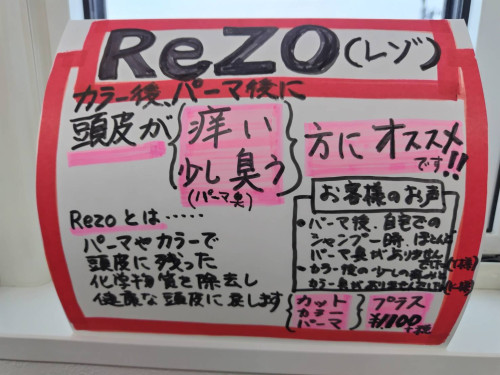 ReZO(レゾ)
カラー後、パーマ後に
頭皮が
痒い
少し臭う
(パーマ臭)
方にオススメ
です!!
Rezoとは‥‥‥
パーマやカラーで
頭皮に残った
化学物質を除去し
健康な頭皮に戻します
お客様のお声
•パーマ後、自宅での
シャンプー時、ほとんど
パーマ臭がありません
•カラー後の少しの
カラー臭がありません
カット
カラー
パーマ
プラス
¥1100